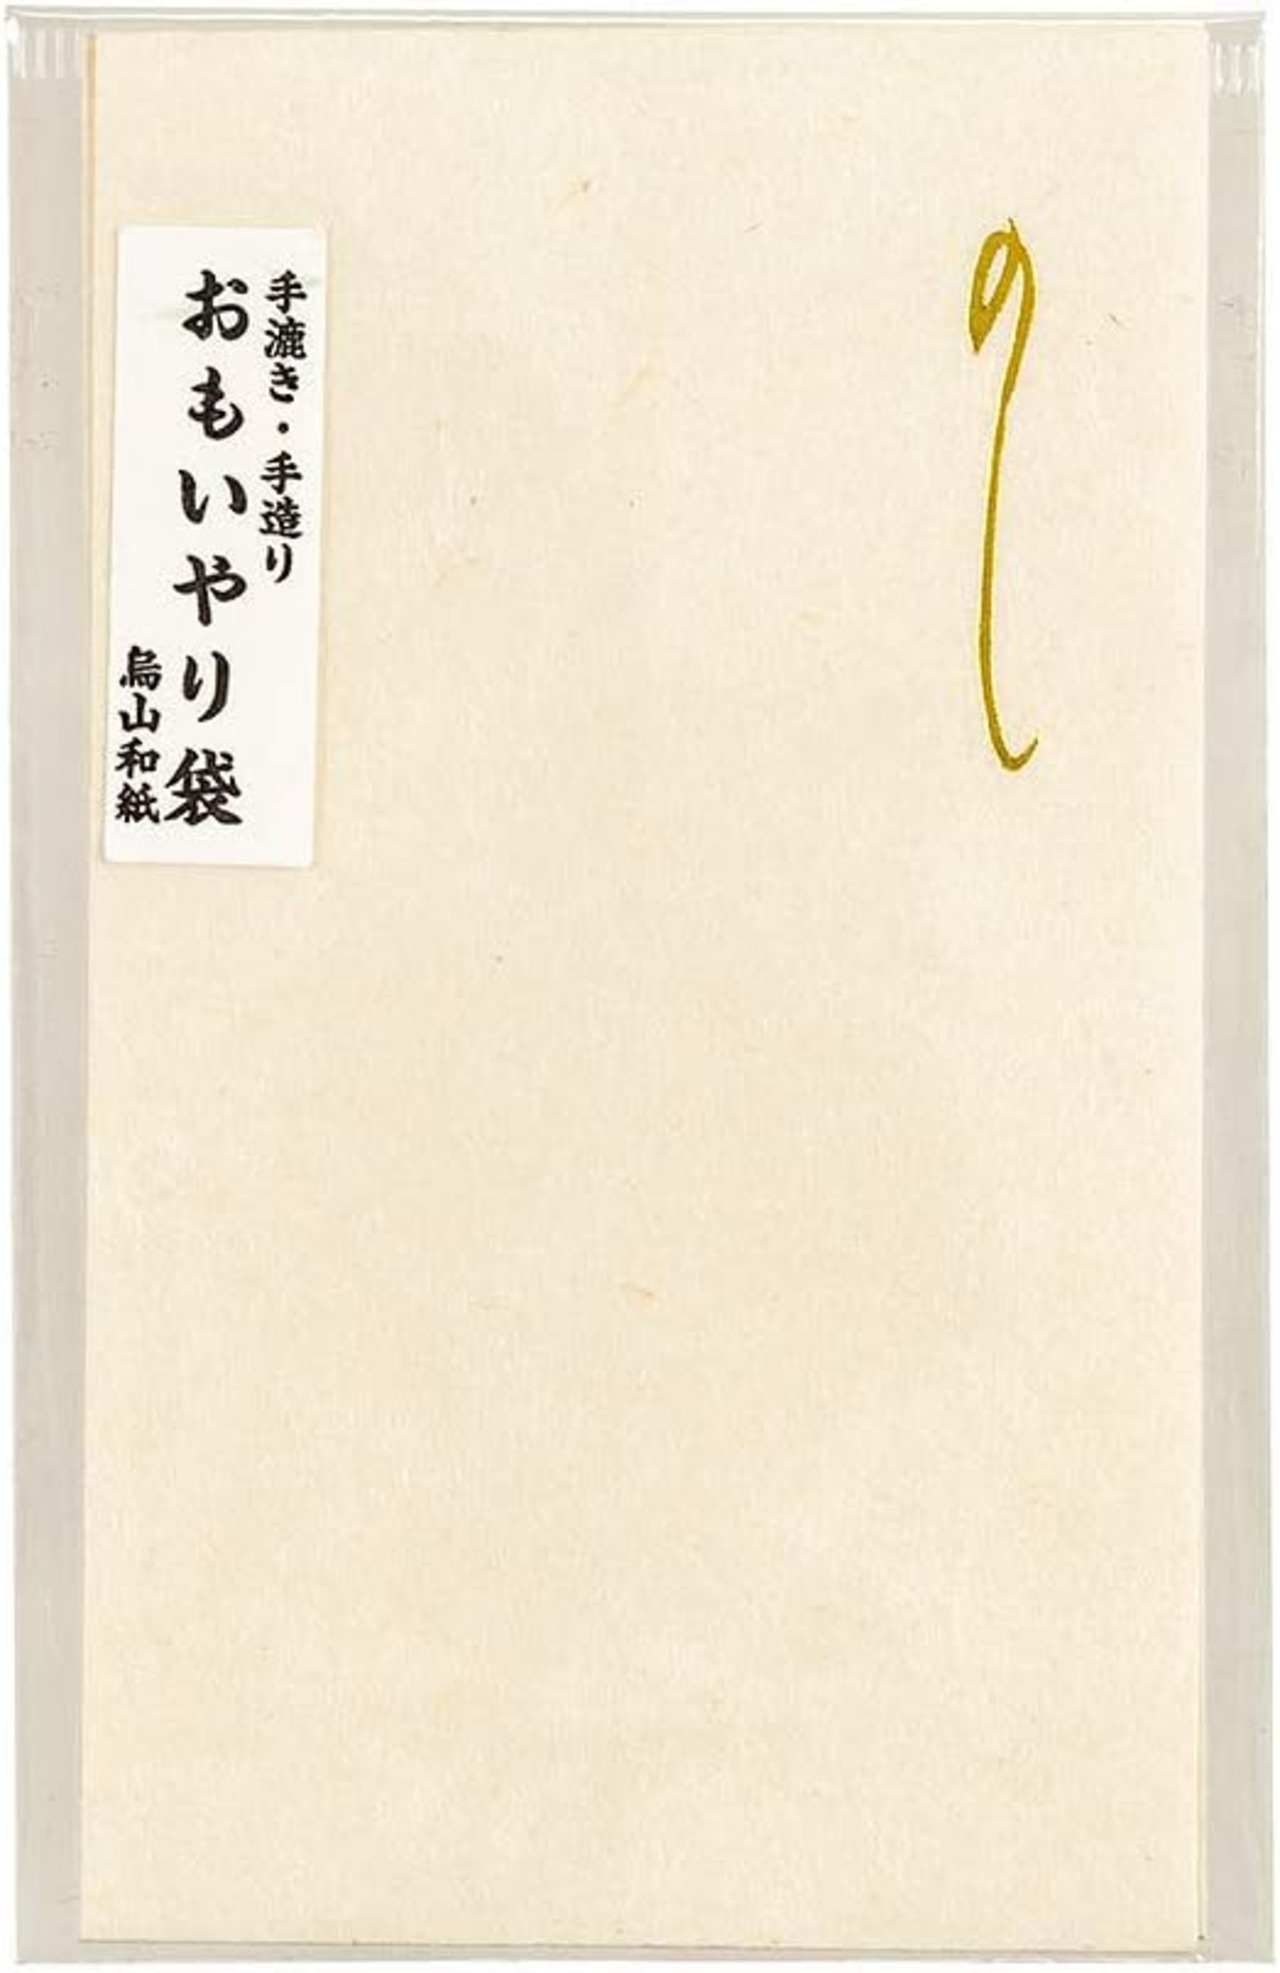 のし
手漉き・手造り
おもいやり袋
烏山和紙